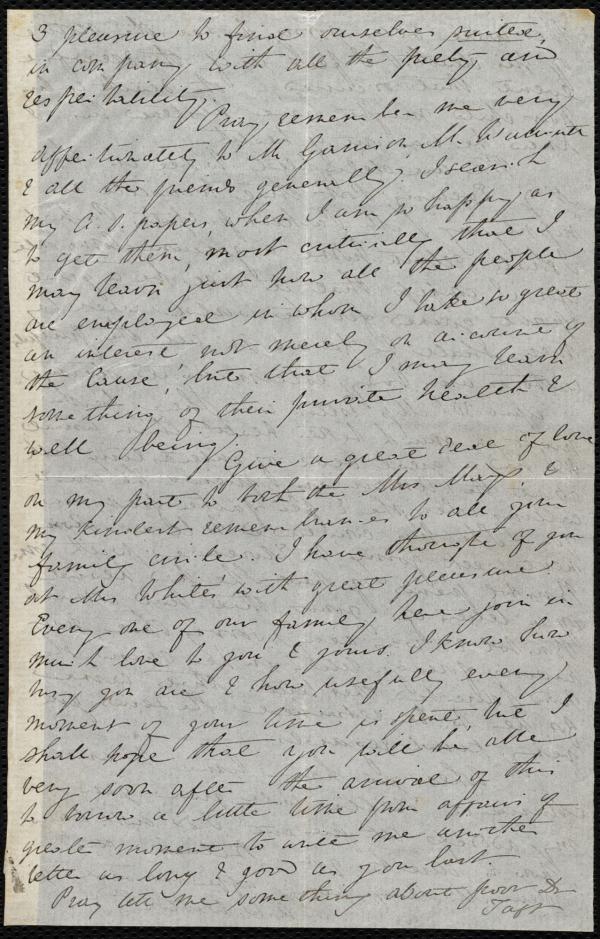 3 pleasure to find ourselves suited,
in company with all the piety and
respectability.
Pray, remember me very
affectionately to Mr Garrison Mr
& all the friends generally. I search
my A. S. papers, when I am so happy as
to get them, most critically that I
may learn just how all the people
are employed in whom I take so great
an interest not merely on account of
the Cause, but that I may learn
something of their private health &
well being.
Give a great deal of love
on my part to both the Mrs Mays &
my kindest remembrances to all your
family circle. I have thought of you
at Mrs White's with great pleasure.
Every one of our family here join in
much love to you & yours. I know how
busy you are & how usefully every
moment of your time is spent, but I
shall hope that you will be able
very soon after the arrival of this
to borrow a little time from affairs of
greater moment to write me another
letter as long & good as your last.
Pray tell me something about poor Dr
Taft